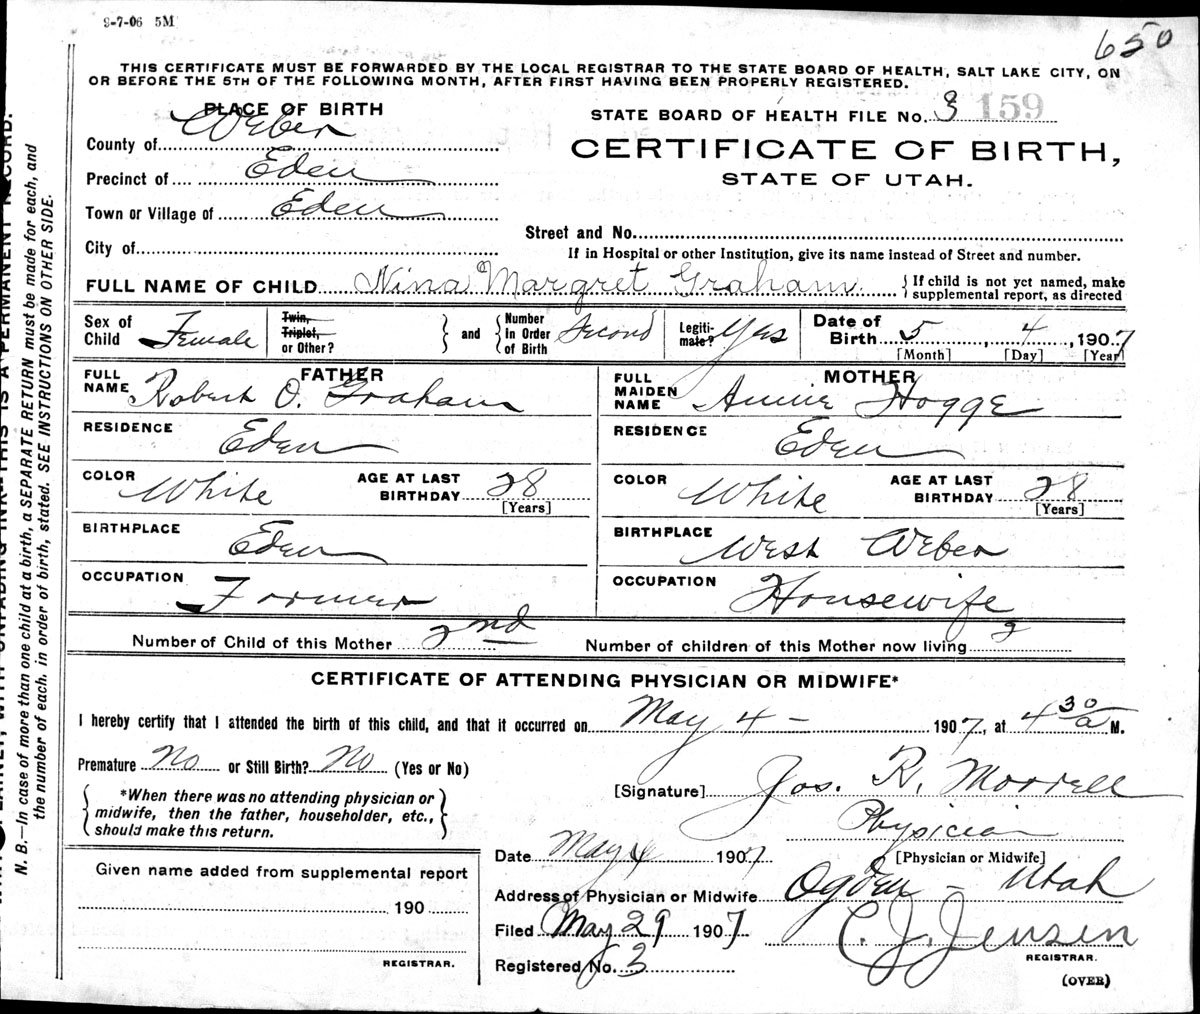 9-7-06 5M
650
THIS CERTIFICATE MUST BE FORWARDED BY THE LOCAL REGISTRAR TO THE STATE BOARD OF HEALTH, SALT LAKE CITY, ON
OR BEFORE THE 5TH OF THE FOLLOWING MONTH, AFTER FIRST HAVING BEEN PROPERLY REGISTERED.
PLACE OF BIRTH
County of Weber
Precinct of Eden
Town or Village of Eden
City of
STATE BOARD OF HEALTH FILE No. 3 159
CERTIFICATE OF BIRTH,
STATE OF UTAH.
Street and No.
If in Hospital or other Institution, give its name instead of Street and number.
FULL NAME OF CHILD Nina Margret Graham { If child is not yet named, make
supplemental report, as directed
Sex of Child Female Twin, Triplet, or Other? } and { Number In Order of Birth Second Legiti-mate? Yes Date of Birth 5 4, 1907
[Month] [Day] [Year]
FATHER
FULL NAME Robert O. Graham
RESIDENCE Eden
COLOR White AGE AT LAST BIRTHDAY 28 [Years]
BIRTHPLACE Eden
OCCUPATION Farmer
MOTHER
FULL MAIDEN NAME Annie Hogge
RESIDENCE Eden
COLOR White AGE AT LAST BIRTHDAY 28 [Years]
BIRTHPLACE West Weber
OCCUPATION Housewife
Number of Child of this Mother 2nd Number of children of this Mother now living 2
CERTIFICATE OF ATTENDING PHYSICIAN OR MIDWIFE*
I hereby certify that I attended the birth of this child, and that it occurred on May 4 - 1907, at 4 30 a M.
Premature No or Still Birth? No (Yes or No)
{ *When there was no attending physician or
midwife, then the father, householder, etc.,
should make this return. }
[Signature] Jos. R. Morrell
Physician
[Physician or Midwife]
Date May 4 1907
Address of Physician or Midwife Ogden - Utah
Filed May 29 1907 C. J. Jensen
REGISTRAR.
Registered No. 3
(OVER)
Given name added from supplemental report
190
REGISTRAR.
N. B.—In case of more than one child at a birth, a SEPARATE RETURN must be made for each, and
the number of each, in order of birth, stated. SEE INSTRUCTIONS ON OTHER SIDE.